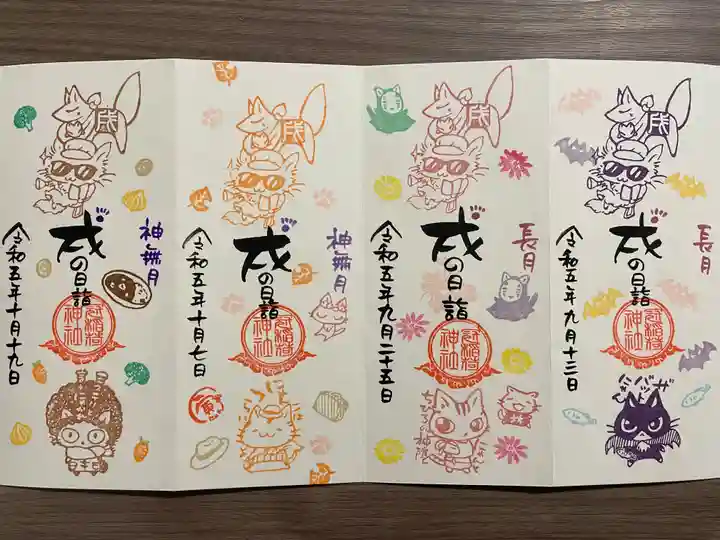 戌
長月
戌の日詣
冠稲荷
神社
令和五年九月十三日
戌
長月
戌の日詣
冠稲荷
神社
令和五年九月二十五日
戌
神無月
戌の日詣
冠稲荷
神社
令和五年十月七日
戌
神無月
戌の日詣
冠稲荷
神社
令和五年十月十九日